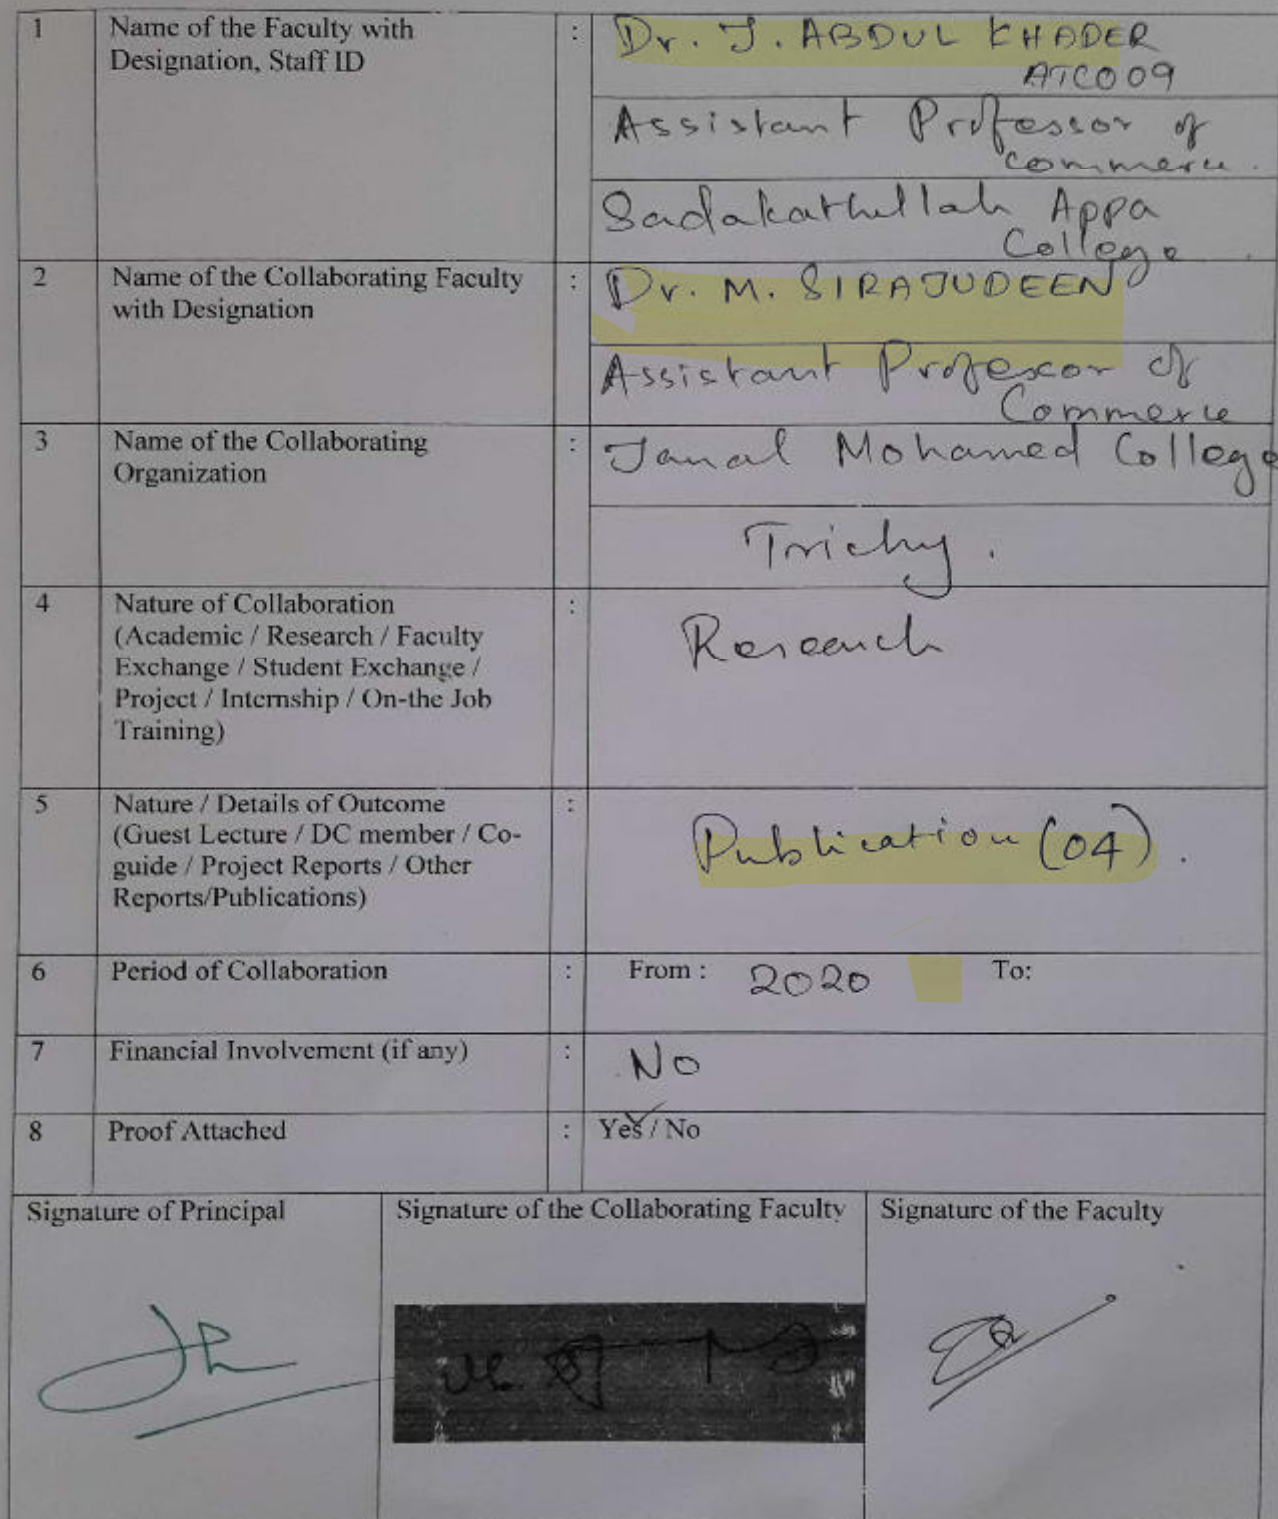 1 Name of the Faculty with : Dr. J. ABDUL KHADER
Designation, Staff ID ATC009
Assistant Professor of
Commerce.
Sadakathullah Appa
College.
2 Name of the Collaborating Faculty : Dr. M. SIRAJUDEEN
with Designation
Assistant Professor of
Commerce
3 Name of the Collaborating : Jamal Mohamed College
Organization
Trichy.
4 Nature of Collaboration :
(Academic / Research / Faculty Research
Exchange / Student Exchange /
Project / Internship / On-the Job
Training)
5 Nature / Details of Outcome :
(Guest Lecture / DC member / Co- Publication (04).
guide / Project Reports / Other
Reports/Publications)
6 Period of Collaboration : From : 2020 To:
7 Financial Involvement (if any) : No
8 Proof Attached : Yes / No
Signature of Principal Signature of the Collaborating Faculty Signature of the Faculty